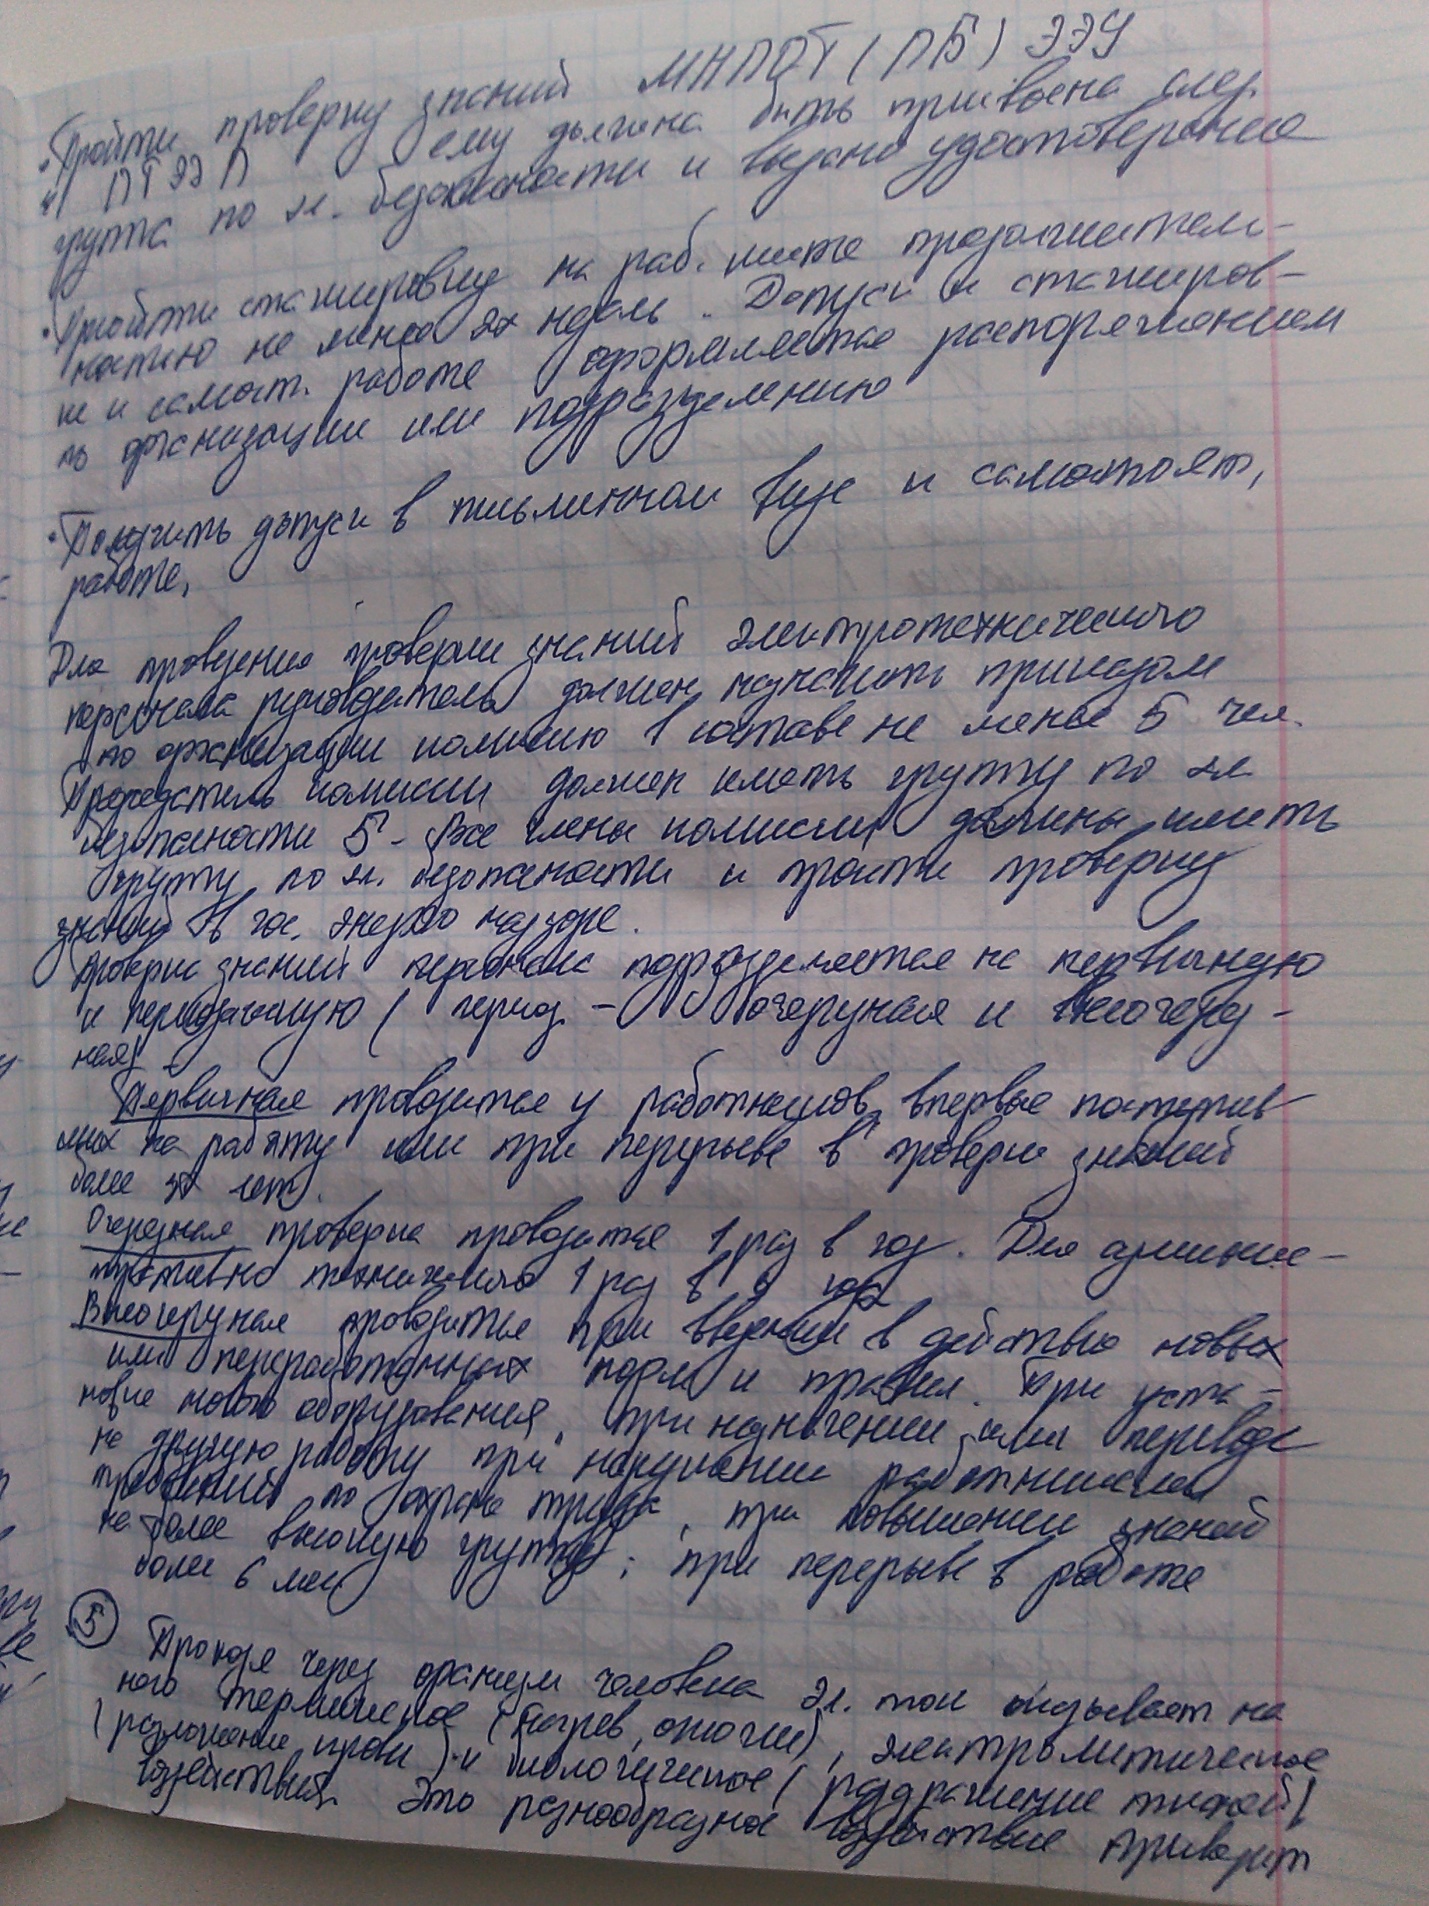 • Пройти проверку знаний МНПОТ (ПБ) ЭЭУ
и ПТЭЭП ему должна быть присвоена след.
группа по эл. безопасности и выдано удостоверение
• Пройти стажировку на раб. месте продолжитель-
ностью не менее 2х недель. Допуск к стажиров-
ке и самост. работе оформляется распоряжением
по организации или подразделению
• Получить допуск в письменном виде к самостоят,
работе,
Для проведения проверки знаний электротехнического
персонала руководитель должен назначить приказом
по организации комиссию в составе не менее 5 чел.
Председатель комиссии должен иметь группу по эл.
безопасности 5. Все члены комиссии должны иметь
группу по эл. безопасности и пройти проверку
знаний в гос. энерго надзоре.
Проверка знаний персонала подразделяется на первичную
и периодичную ( период. - очередная и внеочеред-
ная)
Первичная проводится у работников, впервые поступив
ших на работу или при перерыве в проверке знаний
более 3х лет.
Очередная проверка проводится 1 раз в год. Для админис-
тративно технического 1 раз в года
Внеочередная проводится при введении в действие новых
или переработанных норм и правил. При уста-
новке нового оборудования, при назначении или переводе
на другую работу при нарушении работниками
требований по охране труда, при повышении знаний
на более высокую группу; при перерыве в работе
более 6 мес
5 Проходя через организм человека эл. ток оказывает на
него термическое (нагрев, ожоги), электролитическое
(разложение крови) и биологическое (раздражение тканей)
воздействия. Это разнообразное воздействие приводит